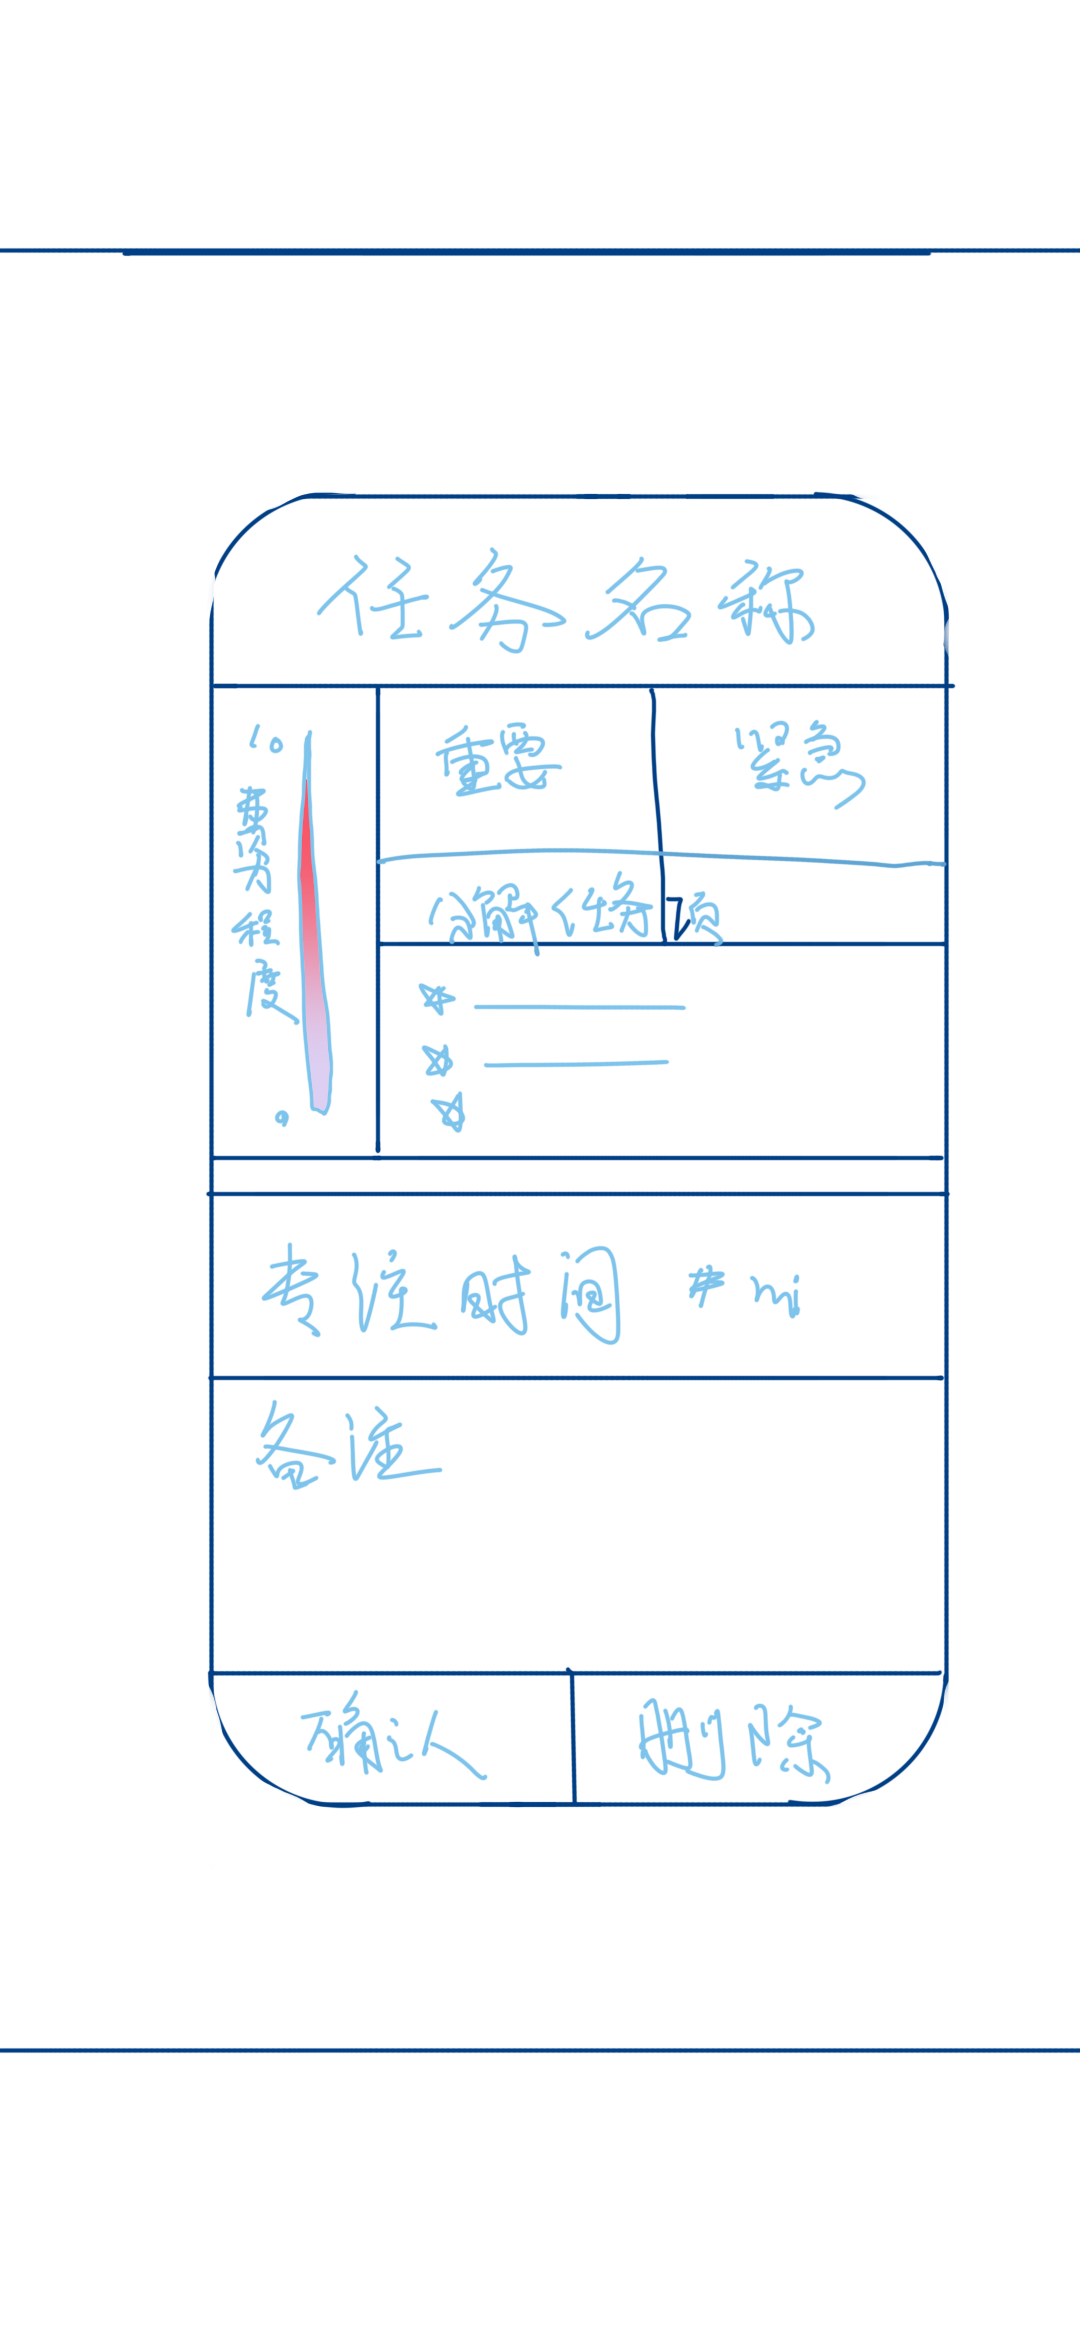 任务名称
10
费劳程度
0
重要
紧急
分解任务项
专注时间 # mi
备注
确认
删除